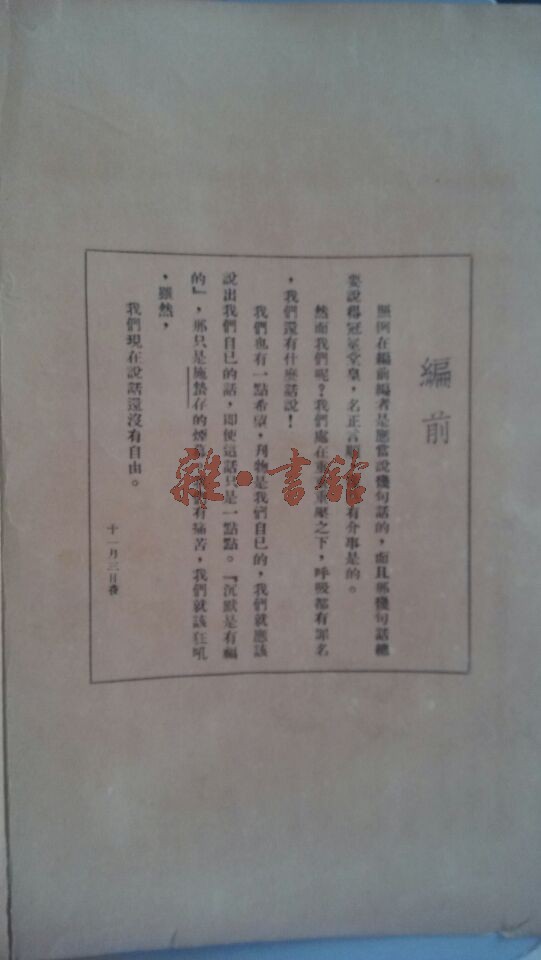 編前
照例在編前編者是應當說幾句話的，而且那幾句話總
要說得冠冕堂皇，名正言順有介事是的。
然而我們呢？我們處在重重重壓之下，呼吸都有罪名
，我們還有什麼話說！
我們也有一點希望，刊物是我們自己的，我們就應該
說出我們自己的話，即使這話只是一點點。『沉默是有福
的』，那只是施蟄存的煙幕有痛苦，我們就該狂吼
，雖然，
我們現在說話還沒有自由。
十一月三日夜
雜·書館